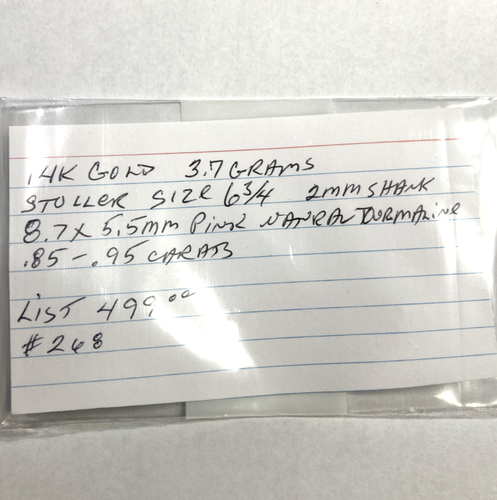 14K GOLD 3.7 GRAMS
STULLER SIZE 6 3/4 2mm SHANK
8.7 x 5.5mm PINK NATRAL TOURMALINE
.85 - .95 CARATS
LIST 499.00
#268